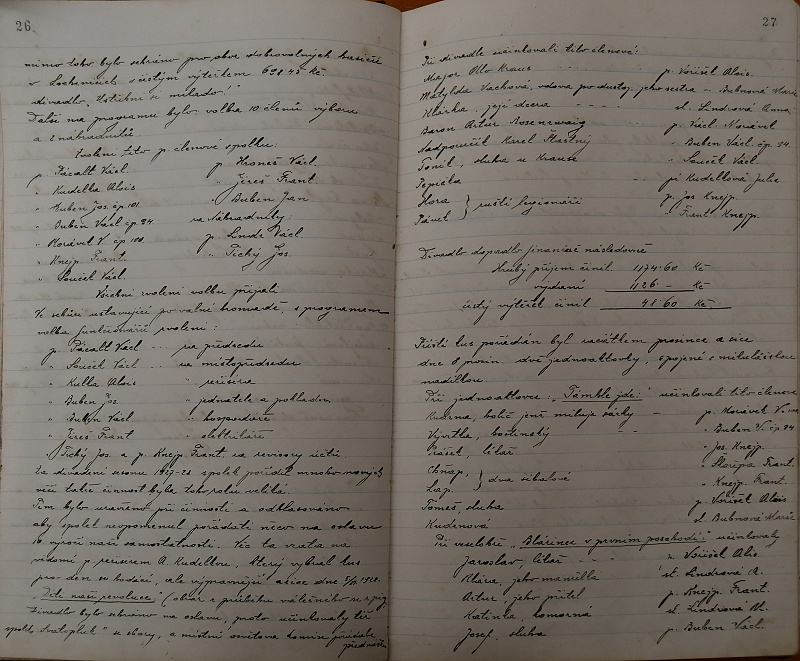 26
mimo toho bylo sehráno pro sbor dobrovolných hasičů
v Lochenicích s čistým výtěžkem 698.45 Kč
divadlo „
Další na programu bylo volba 10 členů výboru
a 2 náhradníků
Zvoleni tito p. členové spolku:
p. Pácalt Václ. p. Hroneš Václ.
" Kudella Alois " Jireš Frant.
" Buben Jos. čp. 101. " Buben Jan
" Buben Václ čp. 94. za Náhradníky:
" Morávek V. čp 100. p. Linde Václ.
" Knejp. Frant. " Tichý Jos
" Souček Václ.
Všichni zvolení volbu přijali
Ve schůzi ustavující po valné hromadě, s programem
volba funkcionářů zvoleni:
p. Pácalt Václ ... za předsedu
" Souček Václ ... za místopředsedu
" Alois " režiséra
" Buben Jos " jednatele a pokladn.
" Buben Václ " hospodáře
" Jireš Frant " elektrikáře
Tichý Jos. a p. Knejp. Frant. za revisory účtů
Za divadení sezonu 1927-28 spolek pořádal mnoho nových
věcí takže činnost byla toho roku veliká.
Tím bylo ustáno při činnosti a odhlasováno
aby spolek neopomenul pořádati něco na oslavu
10 výročí naší samostatnosti. Věc ta vzata na
vědomí p. režisérem A. Kudellou, který vybral kus
pro den se hodící, ale výpravnější a sice dne 1928.
„Děti naší revoluce" (obraz z průběhu válečného
Divadlo bylo sehráno na oslavu, proto účinkovaly též
spolek „Svatopluk" se sbory, a místní osvětová komise přidala
přednášku
27
Při divadle účinkovali tito členové:
Major Otto Kraus p. Voříšek Alois.
Matylda Vachová, vdova po důstoj. jeho sestra - Bubnová Marie
Klárka, její dcera - - - - sl. Lindrová Anna
Baron Artur Rosenzwaig p. Václ. Morávek
Nadporučík Karel Šťastný " Buben Václ. čp. 94.
Toník, sluha u Krause " Souček Václ.
Pepička pí Kudellová Julie
Hora } ruští legionáři p. Jos Knejp.
Pavel } " Frant Knejp.
Divadlo dopadlo finančně následovně
Hrubý příjem činil 1174.60 Kč
vydání 1126.- Kč
čistý výtěžek činil 48.60 Kč
Příští kus pořádán byl začátkem prosince a sice
dne 8 prosin. dvě jednoaktovky, spojené s mikulášskou
nadílkou.
Při jednoaktovce: „Támhle jde!" účinkovali tito členové
Kuderna, holič jenž miluje sázky - p. Morávek V.
Vývrtka, hostinský - - " Buben V. čp 94
lékař " Jos. Knejp.
Chňap, } dva šibalové " Skořepa Frant.
Lap. } " Knejp. Frant.
Tomeš, sluha p. Voříšek Alois
Kudrnová sl. Bubnová Marie
Při veselohře „Blázinec v prvním poschodí" účinkovaly
Jaroslav, lékař - - - p. Voříšek Alois.
Klára, jeho manželka sl. Lindrová A.
Artur, jeho přítel p. Knejp. Frant.
Katinka, komorná sl. Lindrová M.
Josef, sluha p. Buben Václ.